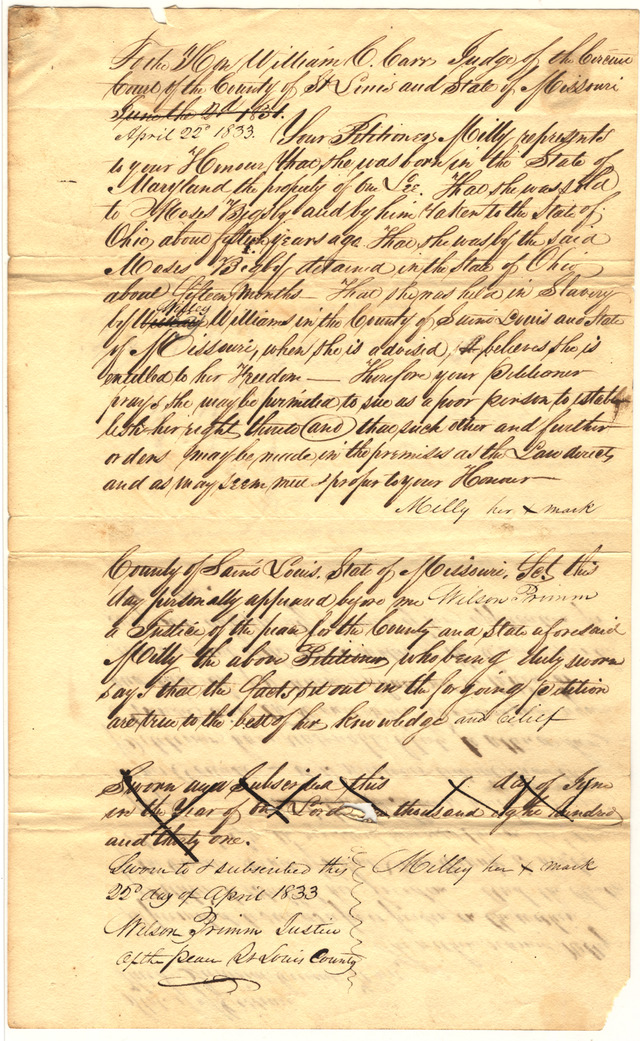 To the Hon William C. Carr Judge of the Circuit
Court of the County of St Louis and State of Missouri
June the 1831.
April 22d 1833. Your Petitioner Milly represents
to your Honour that she was born in the State of
Maryland the property of one Lee. That she was sold
to Moses Bigsby and by him taken to the State of
Ohio about years ago That she was by the said
Moses Bigby detained in the State of Ohio
about fifteen months — That she was held in Slavery
by Williams in the County of Saint Louis and State
of Missouri, when she is advised, & believes she is
entitled to her Freedom — Therefore your petitioner
prays she may be permitted to sue as a poor person to estab-
lish her right thereto and that such other and further
orders may be made in the premises as the Law directs
and as may seem meet & proper to your Honour —
Milly her x mark
County of Saint Louis. State of Missouri. Set this
day personally appeared before me Wilson Primm
a Justice of the peace for the County and State aforesaid
Milly the above Petitioner who being duly sworn
says that the facts set out in the forgoing petition
are true to the best of her knowledge and belief
Sworn and Subscribed this day of June
in the Year of our Lord thousand eight hundred
and thirty one.
Sworn to & subscribed this Milly her x mark
22d day of April 1833
Wilson Primm Justice
of the peace St Louis County